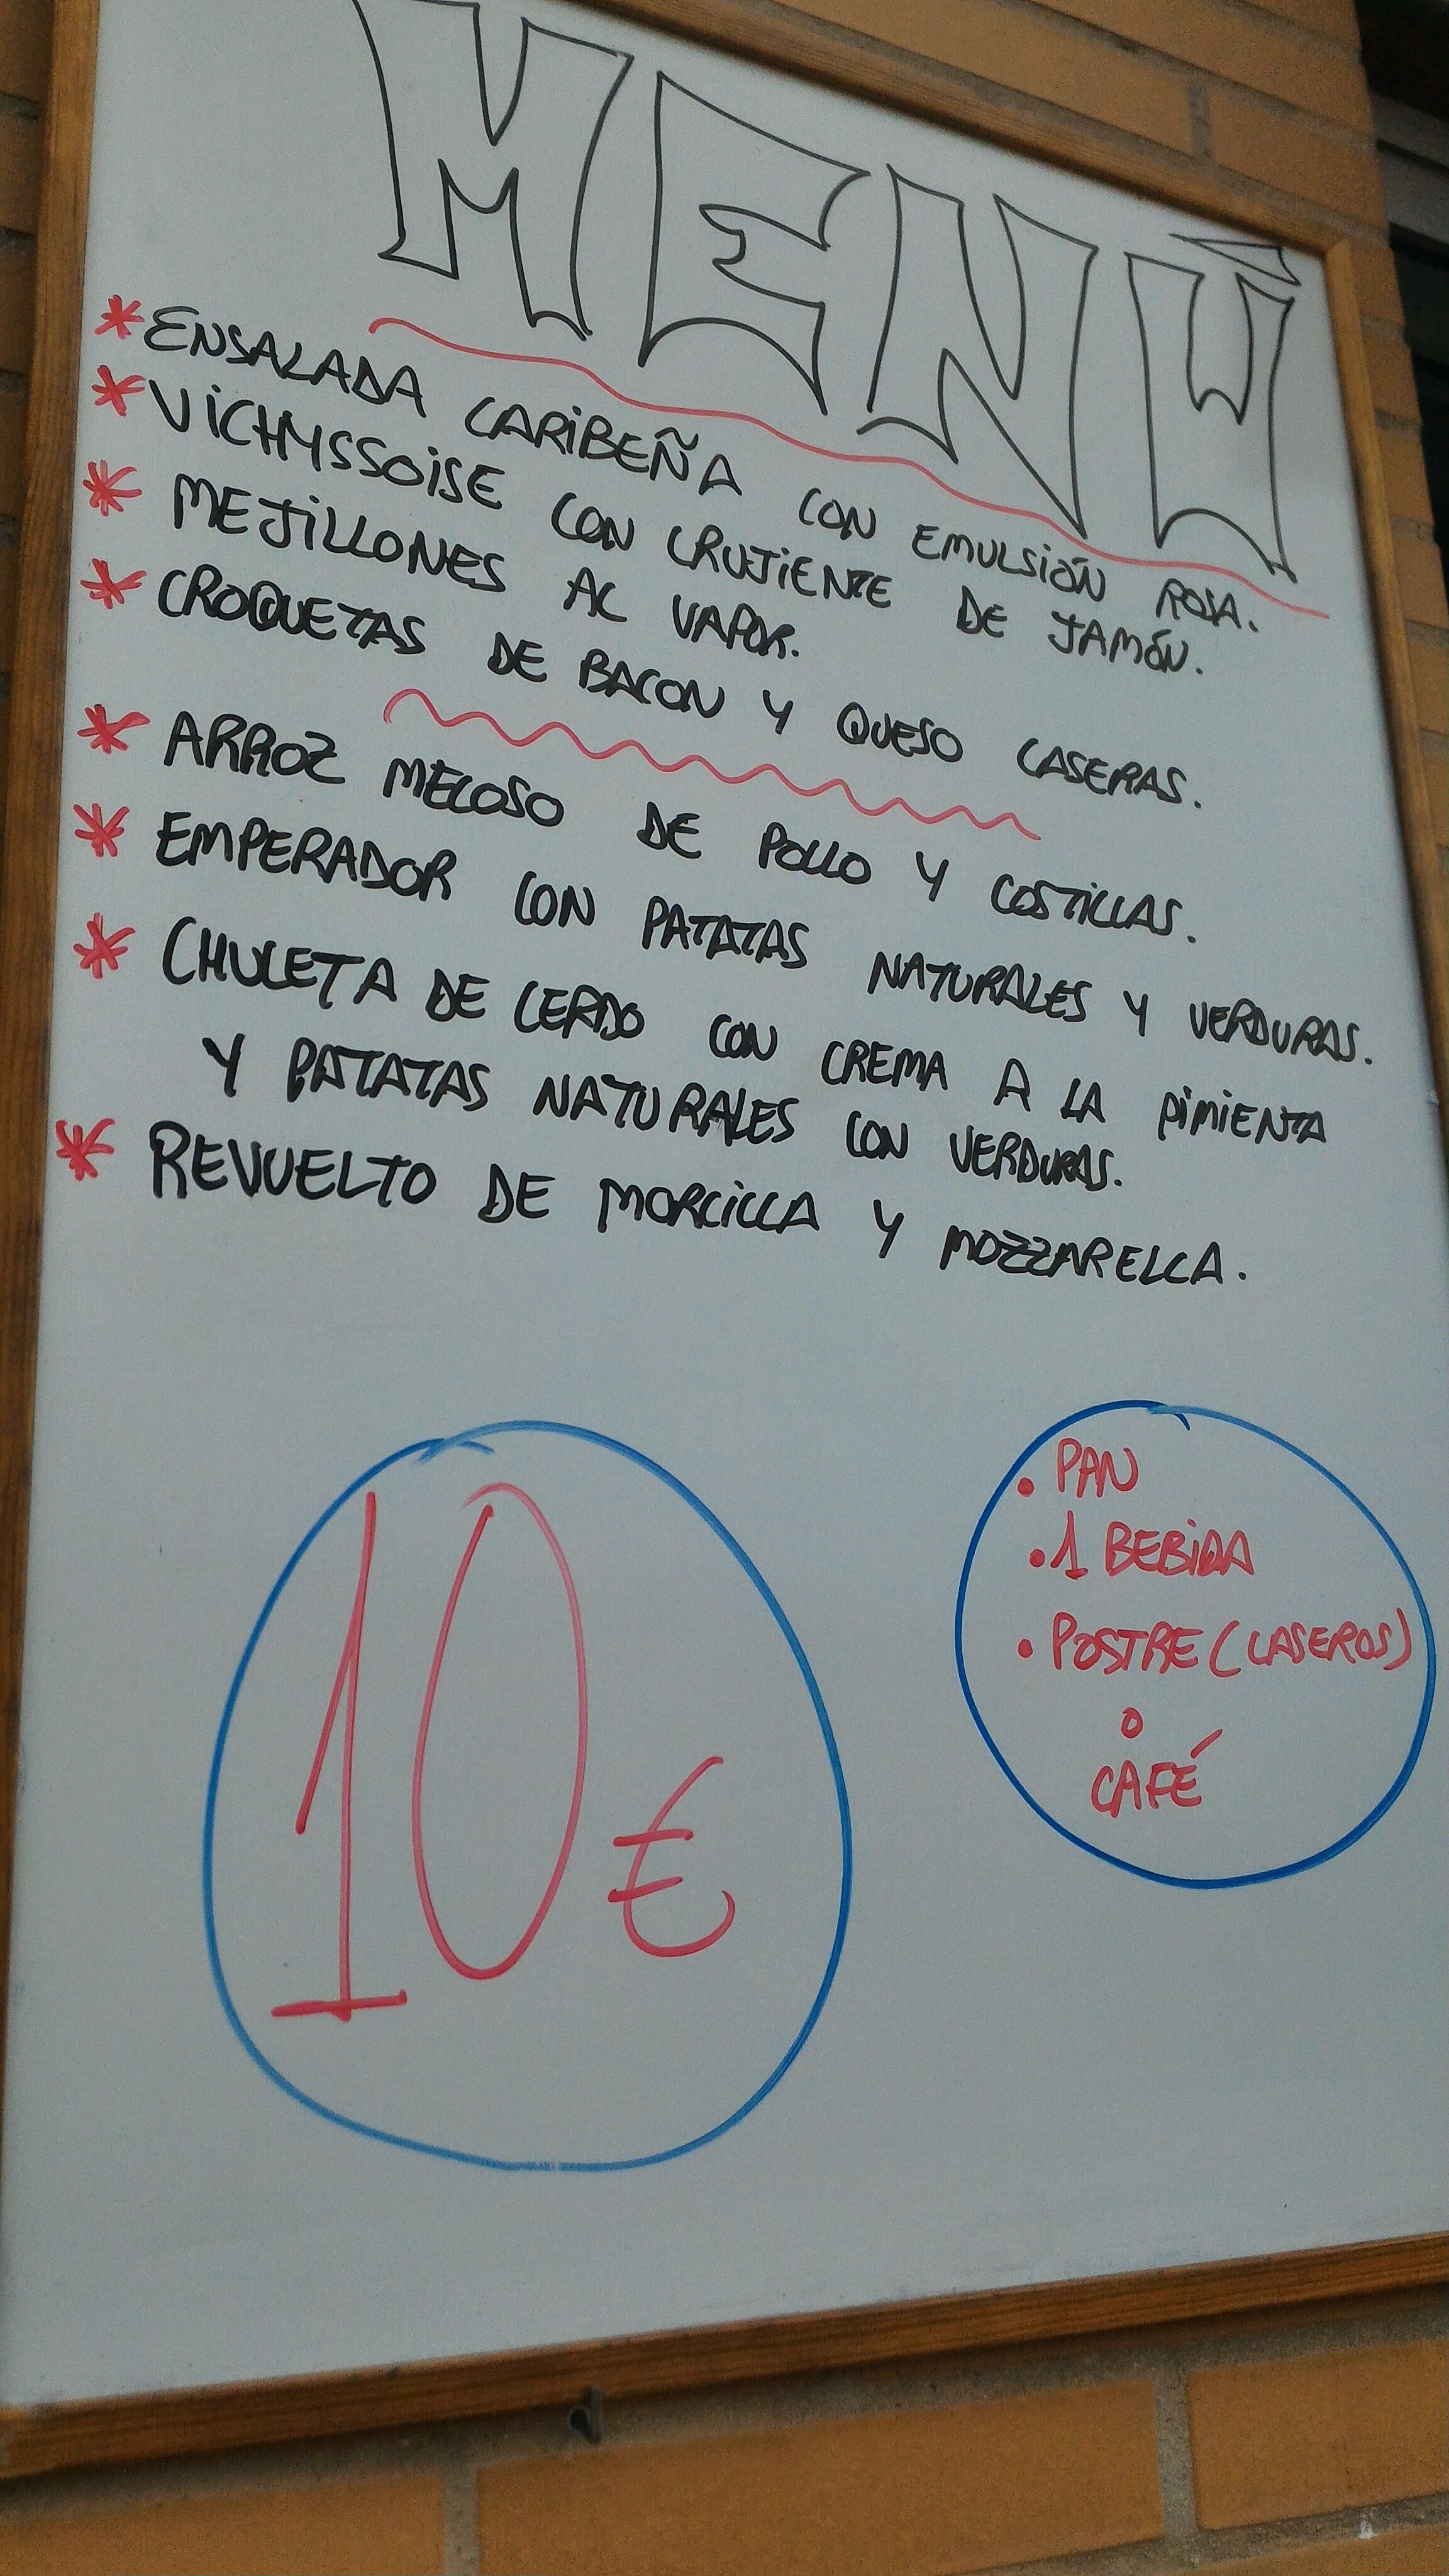 MENÚ
* ENSALADA CARIBEÑA CON EMULSIÓN ROSA.
* VICHYSSOISE CON CRUJIENTE DE JAMÓN.
* MEJILLONES AL VAPOR.
* CROQUETAS DE BACON Y QUESO CASERAS.
* ARROZ MELOSO DE POLLO Y COSTILLAS.
* EMPERADOR CON PATATAS NATURALES Y VERDURAS.
* CHULETA DE CERDO CON CREMA A LA PIMIENTA
Y PATATAS NATURALES CON VERDURAS.
* REVUELTO DE MORCILLA Y MOZZARELLA.
10 €
• PAN
• 1 BEBIDA
• POSTRE (CASEROS)
O
CAFÉ